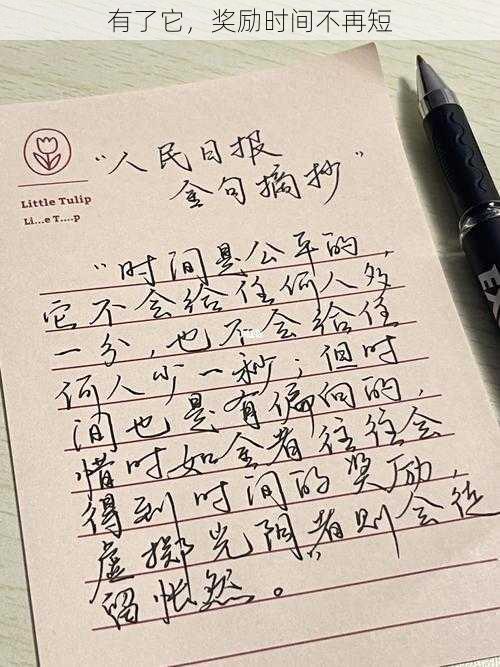 有了它，奖励时间不再短
Little Tulip
Li...e T....p
“人民日报
金句摘抄”
“时间是公平的，
它不会给任何人多
一分，也不会给任
何人少一秒；但时
间也是有偏向的，
惜时如金者往往会
得到时间的奖励，
虚掷光阴者则会徒
留怅然。